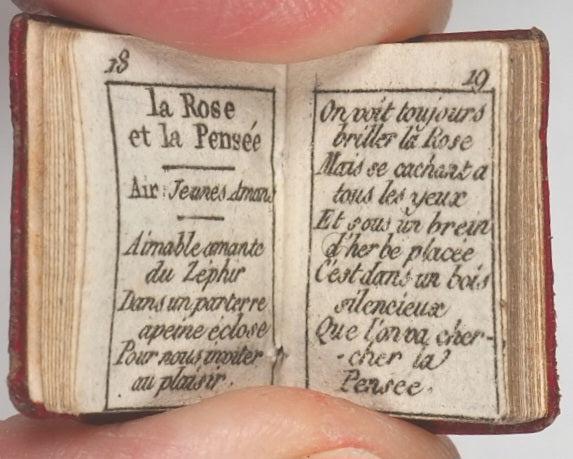 18
la Rose
et la Pensée
Air: Jeunes Amans
Aimable amante
du Zéphir
Dans un parterre
apeine éclose
Pour nous inviter
au plaisir.
19
On voit toujours
briller la Rose
Mais se cachant a
tous les yeux
Et sous un brein
d'herbe placée
C'est dans un bois
silencieux
Que l'on va cher-
-cher la
Pensée.